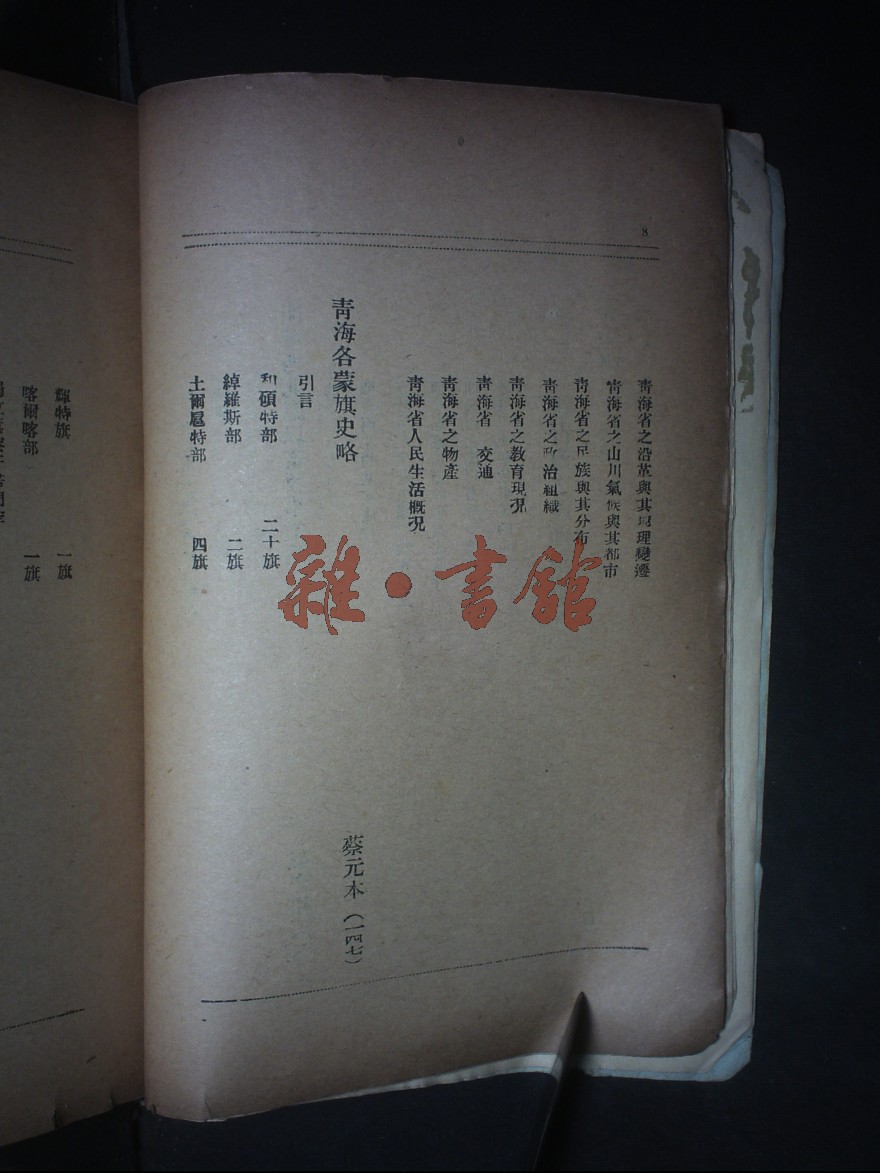 8
青海省之沿革與其地理變遷
青海省之山川氣候與其都市
青海省之民族與其分布
青海省之政治組織
青海省之教育現況
青海省 交通
青海省之物產
青海省人民生活概況
青海各蒙旗史略 蔡元本（一四七）
引言
和碩特部 二十旗
綽羅斯部 二旗
土爾扈特部 四旗
輝特旗 一旗
喀爾喀部 一旗
雜·書館